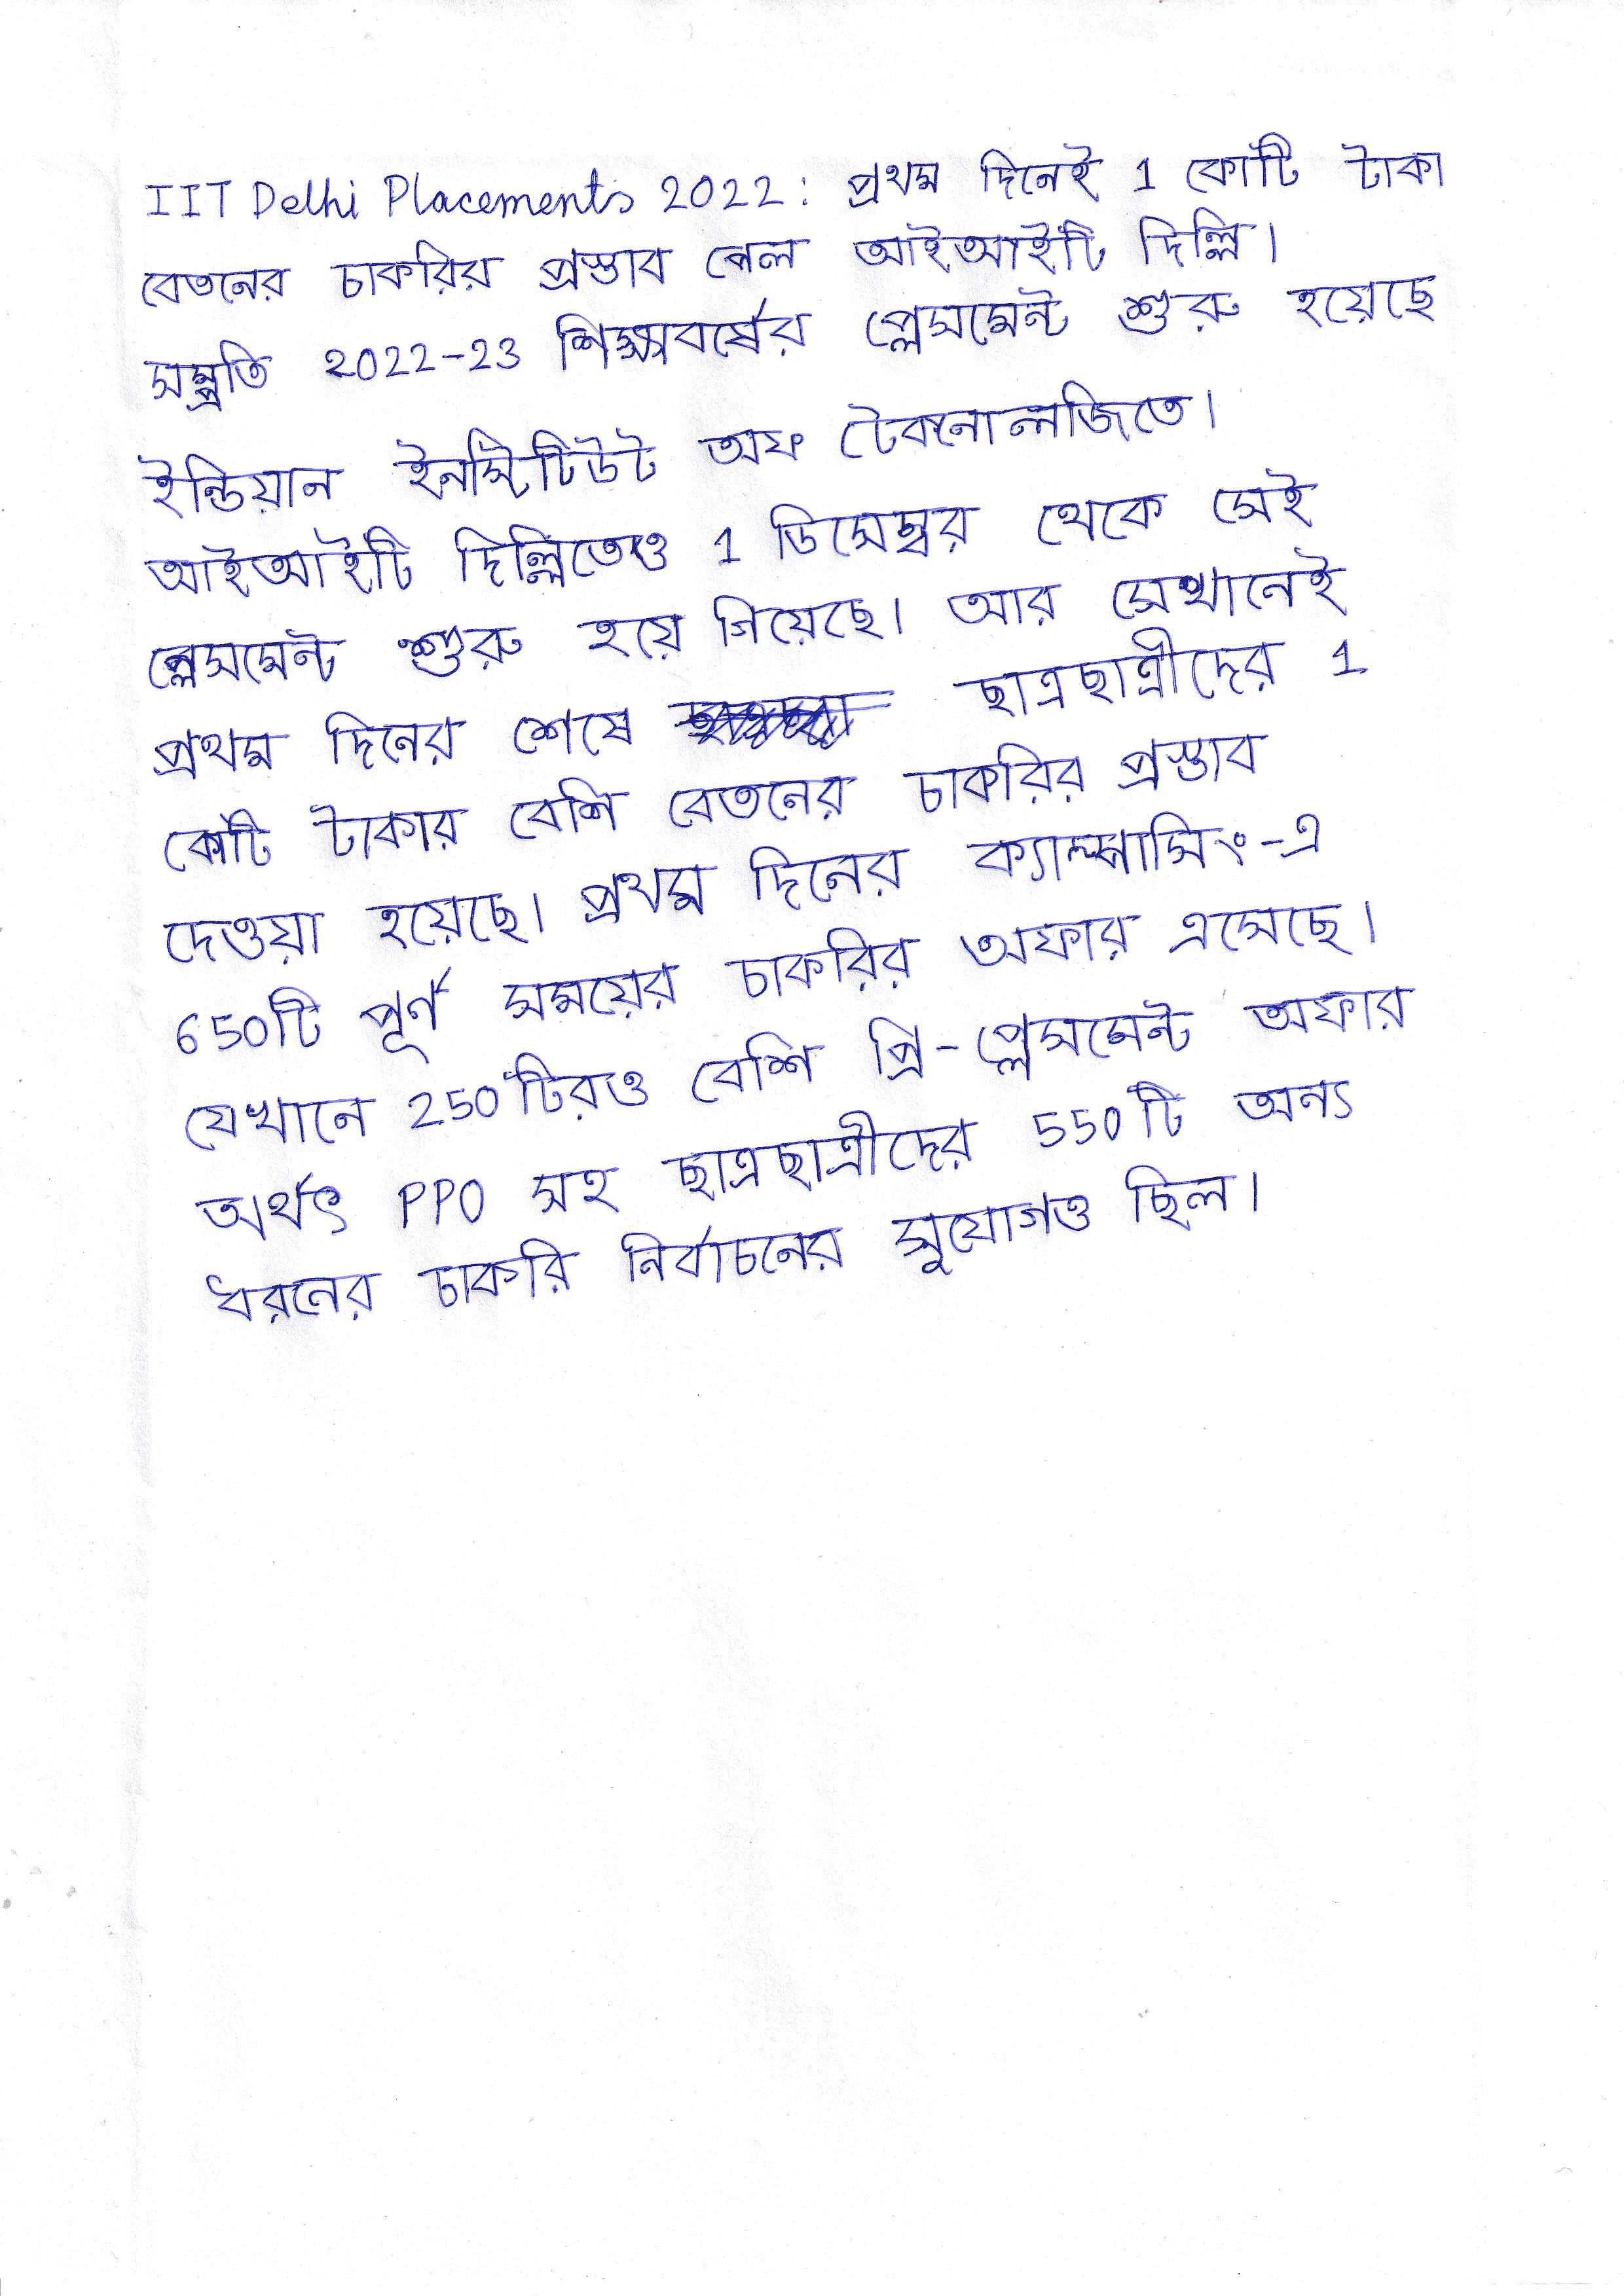 IIT Delhi Placements 2022: প্রথম দিনেই 1 কোটি টাকা
বেতনের চাকরির প্রস্তাব পেল আইআইটি দিল্লি।
সম্প্রতি 2022-23 শিক্ষাবর্ষের প্লেসমেন্ট শুরু হয়েছে
ইন্ডিয়ান ইনস্টিটিউট অফ টেকনোলজিতে।
আইআইটি দিল্লিতেও 1 ডিসেম্বর থেকে সেই
প্লেসমেন্ট শুরু হয়ে গিয়েছে। আর সেখানেই
প্রথম দিনের শেষে ছাত্রছাত্রীদের 1
কোটি টাকার বেশি বেতনের চাকরির প্রস্তাব
দেওয়া হয়েছে। প্রথম দিনের ক্যাম্পাসিং-এ
650টি পূর্ণ সময়ের চাকরির অফার এসেছে।
যেখানে 250টিরও বেশি প্রি-প্লেসমেন্ট অফার
অর্থাৎ PPO সহ ছাত্রছাত্রীদের 550টি অন্য
ধরনের চাকরি নির্বাচনের সুযোগও ছিল।